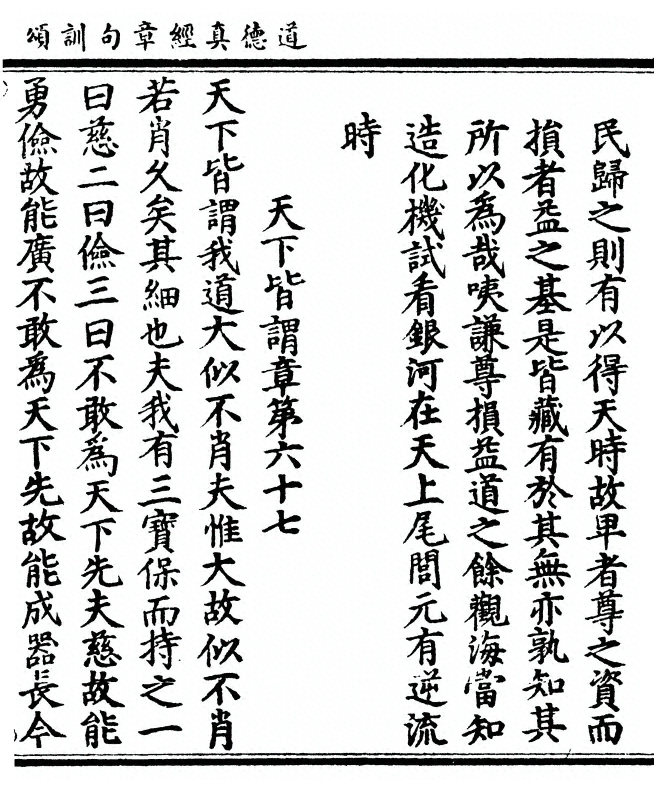 道德真經章句訓頌
民歸之則有以得天時故卑者尊之資而
損者益之基是皆藏有於其無亦孰知其
所以為哉咦謙尊損益道之餘觀海當知
造化機試看銀河在天上尾閭元有逆流
時
天下皆謂章第六十七
天下皆謂我道大似不肖夫惟大故似不肖
若肖久矣其細也夫我有三寶保而持之一
曰慈二曰儉三曰不敢為天下先夫慈故能
勇儉故能廣不敢為天下先故能成器長今